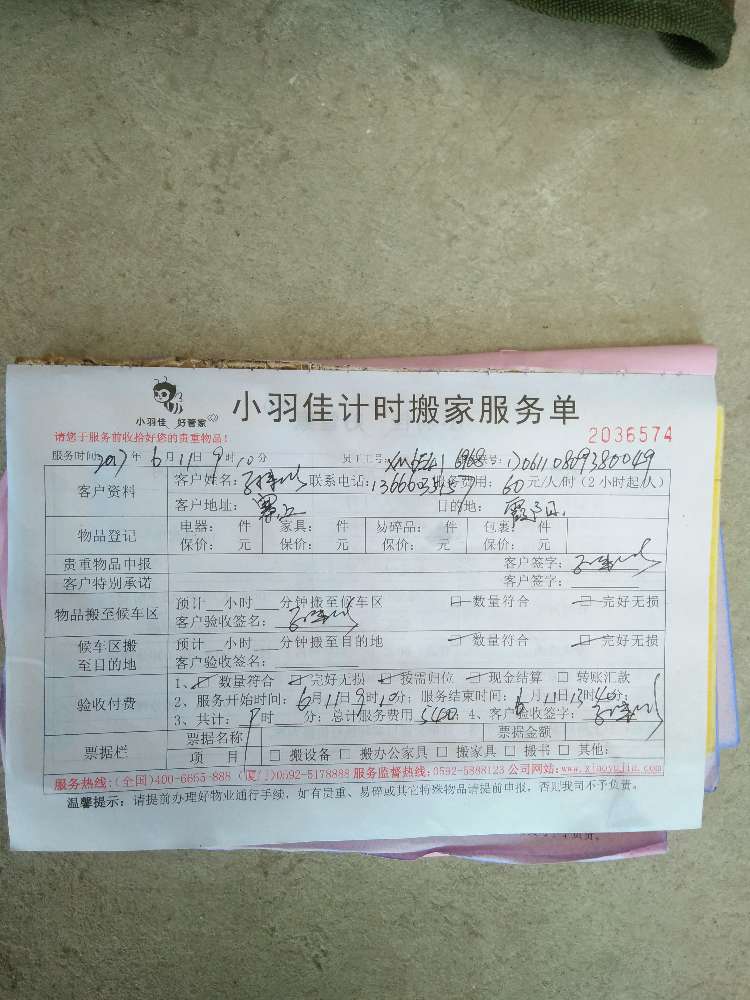 小羽佳 好管家
小羽佳计时搬家服务单
请您于服务前收拾好您的贵重物品!
2036574
服务时间: 2017年6月11日9时10分 员工工号:
客户资料
客户姓名: 联系电话: 服务费用: 60元/人/时(2小时起/人)
客户地址: 目的地:
物品登记
电器: 件 家具: 件 易碎品: 件 包裹: 件
保价: 元 保价: 元 保价: 元 保价: 元
贵重物品申报 客户签字:
客户特别承诺 客户签字:
物品搬至候车区
预计__小时___分钟搬至候车区 □ 数量符合 □ 完好无损
客户验收签名:
候车区搬至目的地
预计__小时___分钟搬至目的地 □ 数量符合 □ 完好无损
客户验收签名:
验收付费
1、□ 数量符合 □ 完好无损 □ 按需归位 □ 现金结算 □ 转账汇款
2、服务开始时间: 6月11日9时10分; 服务结束时间: 6月11日13时40分;
3、共计: 时___分; 总计服务费用 5400; 4、客户验收签字:
票据栏
票据名称 票据金额
项 目 □ 搬设备 □ 搬办公家具 □ 搬家具 □ 搬书 □ 其他:
服务热线:(全国)400-6665-888 (厦门)0592-5178888 服务监督热线:0592-5888123 公司网站:www.xiaoyujia.com
温馨提示: 请提前办理好物业通行手续, 如有贵重、易碎或其它特殊物品请提前申报, 否则我司不予负责。